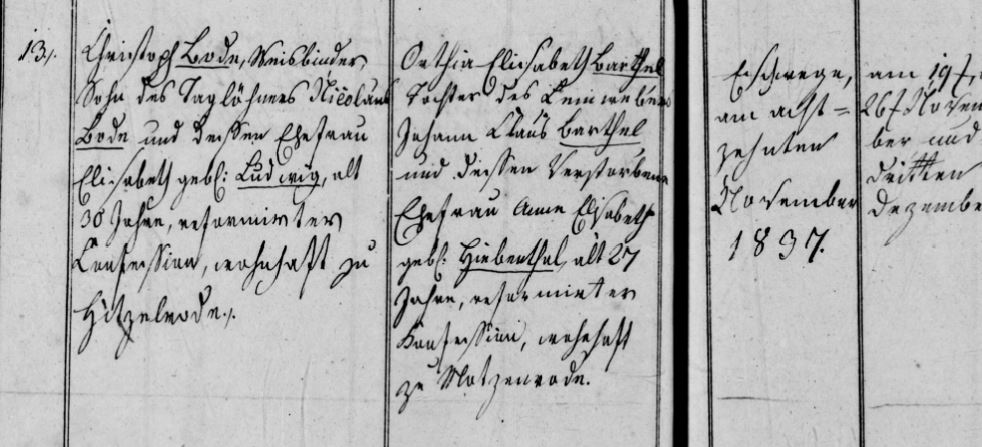 13./.
Christoph Bode, Weisbinder,
Sohn des Taglöhners Nicolaus
Bode und dessen Ehefrau
Elisabeth gebl: Ludwig, alt
30 Jahre, reformirter
Confession, wohnhaft zu
Hitzelrode./.
Orthia Elisabeth Barthel
Tochter des Leinwebers
Johann Claus Barthel
und dessen verstorbene
Ehefrau Anne Elisabeth
gebl. Hiebenthal, alt 27
Jahre, reformirter
Konfession, wohnhaft
zu Motzenrode.
Eschwege,
am acht=
zehnten
November
1837.
am 19t,
26t Novem
ber und
dritten
Dezembe